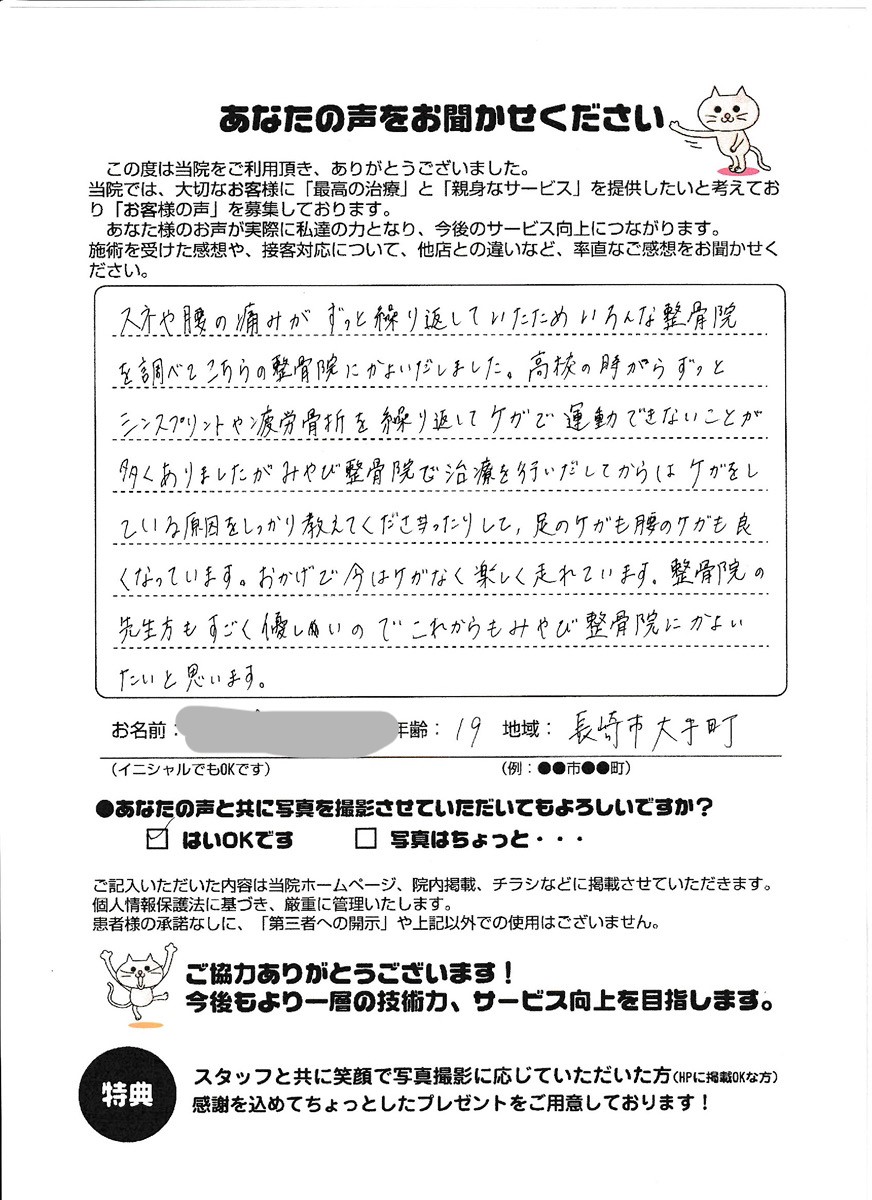 あなたの声をお聞かせください
この度は当院をご利用頂き、ありがとうございました。
当院では、大切なお客様に「最高の治療」と「親身なサービス」を提供したいと考えてお
り「お客様の声」を募集しております。
あなた様のお声が実際に私達の力となり、今後のサービス向上につながります。
施術を受けた感想や、接客対応について、他店との違いなど、率直なご感想をお聞かせく
ださい。
スネや腰の痛みが ずっと繰り返していたため いろんな整骨院
を調べてこちらの整骨院にかよいだしました。高校の時からずっと
シンスプリントや疲労骨折を繰り返してケガで運動できないことが
多くありましたがみやび整骨院で治療を行いだしてからはケガをし
ている原因をしっかり教えてくださったりして、足のケガも腰のケガも良
くなっています。おかげで今はケガなく楽しく走れています。整骨院の
先生方もすごく優しいのでこれからもみやび整骨院にかよい
たいと思います。
お名前： 年齢： 19 地域： 長崎市大手町
（イニシャルでもOKです） （例：●●市●●町）
●あなたの声と共に写真を撮影させていただいてもよろしいですか？
☑ はいOKです □ 写真はちょっと・・・
ご記入いただいた内容は当院ホームページ、院内掲載、チラシなどに掲載させていただきます。
個人情報保護法に基づき、厳重に管理いたします。
患者様の承諾なしに、「第三者への開示」や上記以外での使用はございません。
ご協力ありがとうございます！
今後もより一層の技術力、サービス向上を目指します。
特典
スタッフと共に笑顔で写真撮影に応じていただいた方（HPに掲載OKな方）
感謝を込めてちょっとしたプレゼントをご用意しております！